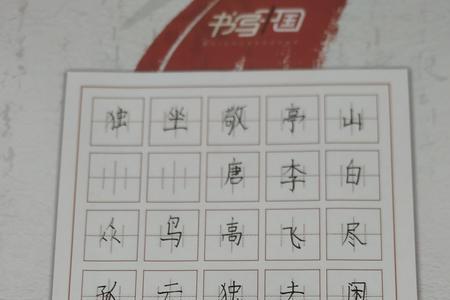 书写中国
独坐敬亭山
唐李白
众鸟高飞尽
孤云独去闲